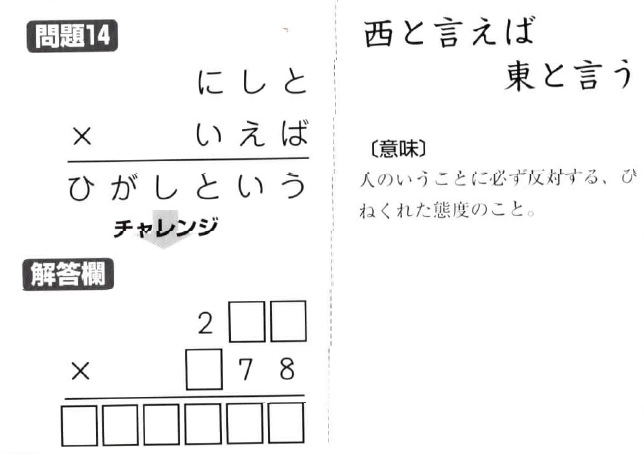 問題14
にしと
× いえば
ひがしという
チャレンジ
解答欄
2□□
× □78
□□□□□□
西と言えば
東と言う
〔意味〕
人のいうことに必ず反対する、ひ
ねくれた態度のこと。